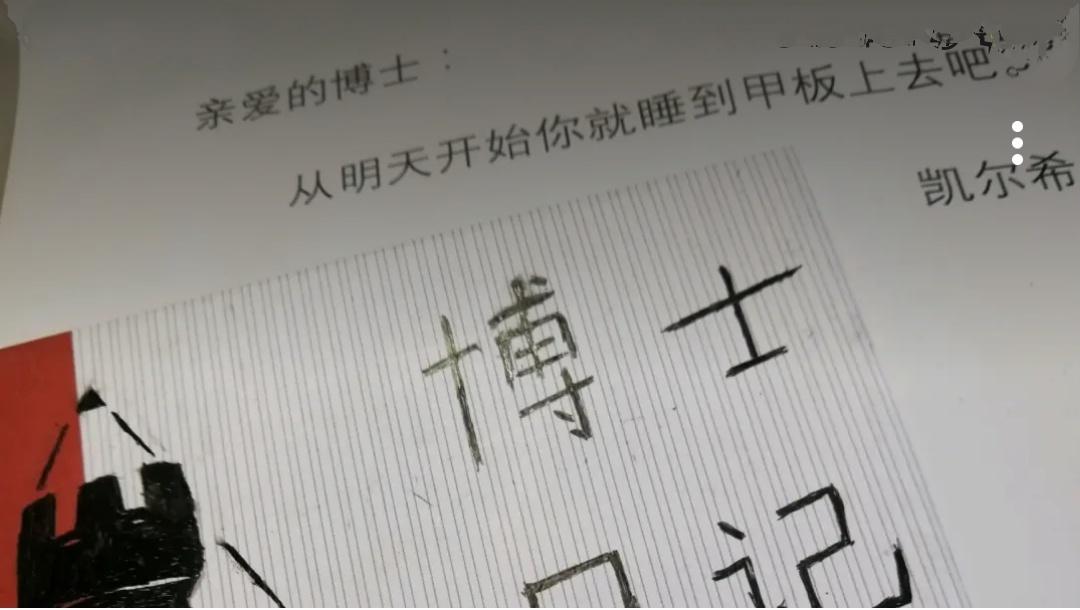 亲爱的博士：
从明天开始你就睡到甲板上去吧。
凯尔希
博士
日记